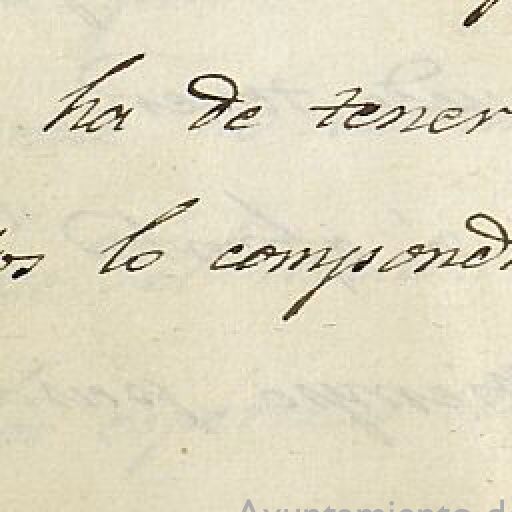 ha de tener
lo compond
Ayuntamiento d